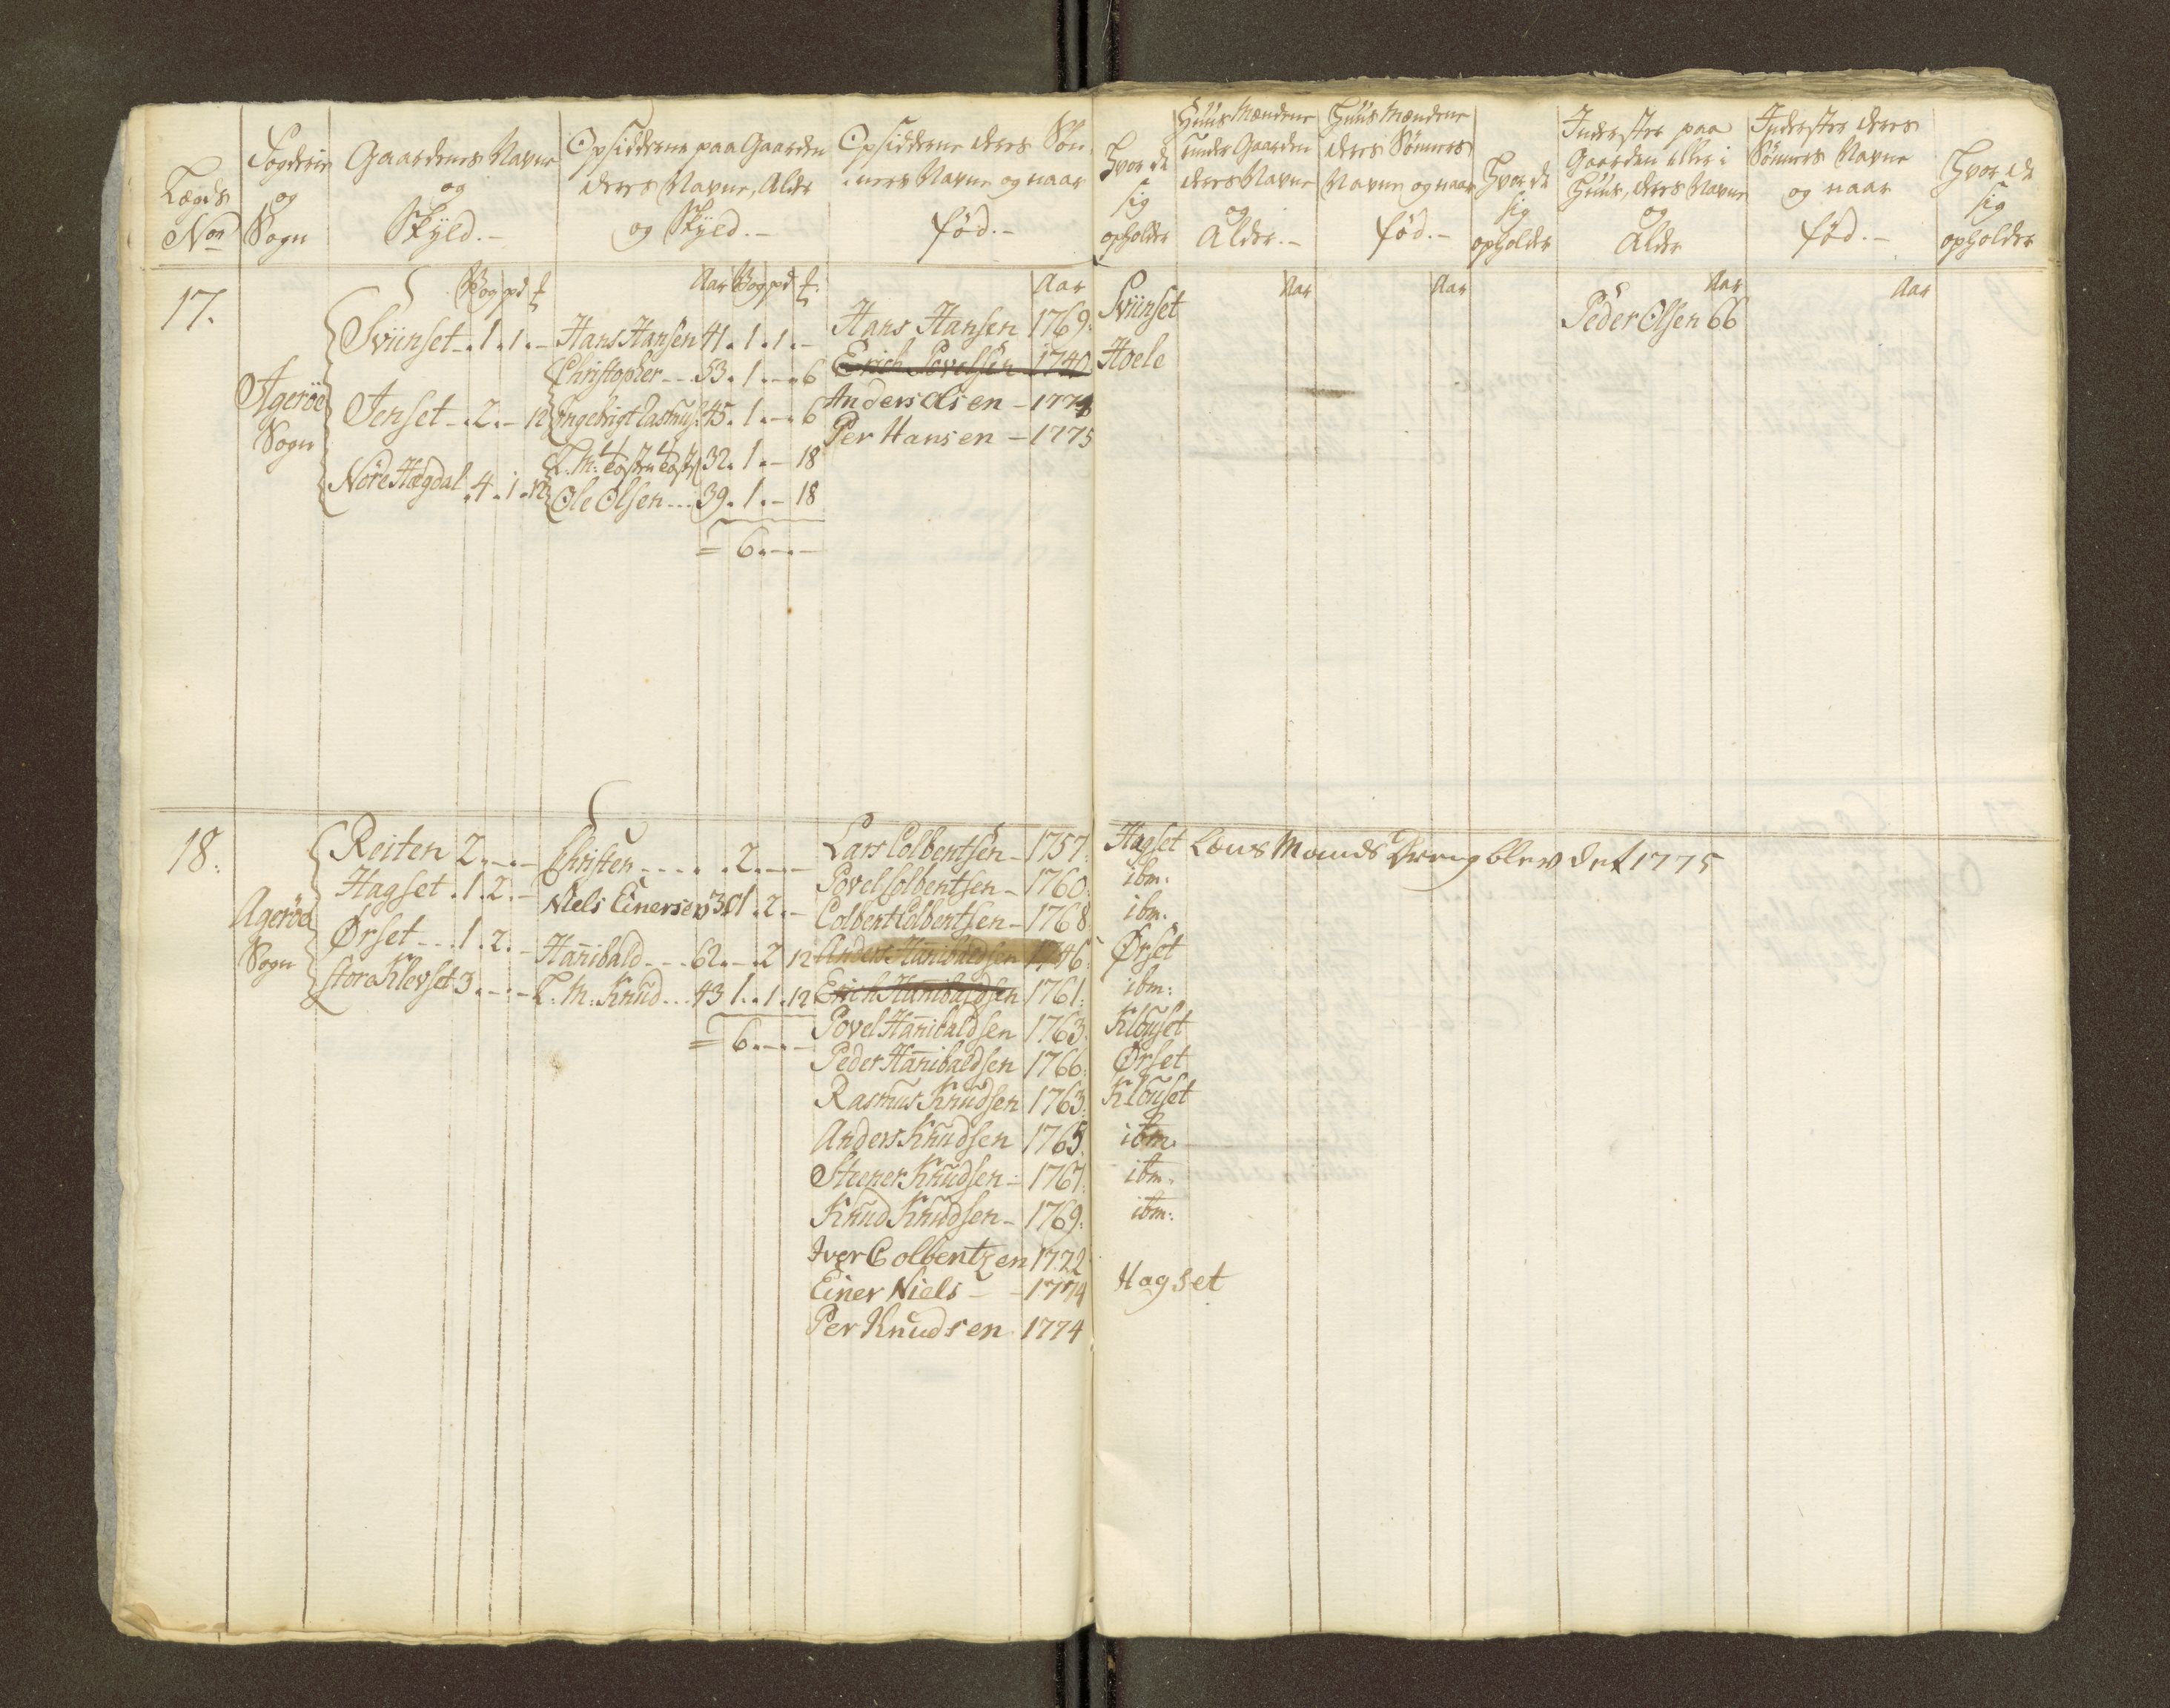 Lægds
No
Fogderie
og
Sogn
Gaardenes Navne
og
Skyld.-
Opsidderne paa Gaarden
deres Navne, Alder
og Skyld.-
Opsidderne deres Søn
ners Navne og naar
fød.-
Hvor de
sig
opholder
Huus Mændene
under Gaarden
deres Navne
og
Alder.-
Huus Mændene
deres Sønners
Navne og naar
fød.-
Hvor de
sig
opholder
Inderster paa
Gaarden eller i
Huus, deres Navne
og
Alder
Inderster deres
Sønners Navne
og naar
fød.-
Hvor de
sig
opholder
17.
Agerøe
Sogn
Vog pd
Sviinset - 1. 1. -
Jenset - 2. - 12
Nore Hægdal 4. 1. 12
Aar Vog pd
Hans Hansen 41. 1. 1. -
Christopher - - 53. 1. - 6
Engebrigt Rasmus 45. 1. - 6
L. M. 32. 1. - 18
Ole Olsen - - - 39. 1. - 18
= 6. - . -
Aar
Hans Hansen 1769.
Erich Povelsen - 1740
Anders Olsen - 1774
Per Hansen - 1775
Sviinset
Hoele
Aar
Aar
Aar
Peder Olsen 66
Aar
18.
Agerøe
Sogn
Reiten 2. - . -
Hagset . 1. 2. -
Ørset - - . 1. 2. -
store Klevset 3. - . -
Christen - - - . . 2. - . -
Niels Einersen 30 1. 2. -
Hanibald - - - 62. - . 2 12
L. M. Knud - - 43 1. . 1. 12
= 6. - . -
Lars Colbentsen - 1757.
Povel Colbentsen - 1760.
Colbent Colbentsen - 1768
Anders Hanibaldsen 1746
Erich Hanibaldsen 1761.
Povel Hanibaldsen 1763.
Peder Hanibaldsen 1766.
Rasmus Knudsen 1763.
Anders Knudsen 1765.
Steener Knudsen - 1767.
Knud Knudsen - 1769.
Iver Colbentzen 1722
Einer Niels - - 1774
Per Knudsen 1774
Hagset Læns Mands Dreng blev det 1775
ibm.
ibm.
Ørset
ibm:
Klouset
Ørset
Klouset
ibm.
ibm.
ibm:
Hagset